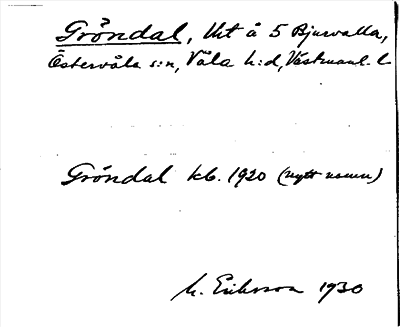 Gröndal, lht å 5 Bjurvalla,
Östervåla s:n, Våla h:d, Västmanl. l.
Gröndal kb. 1920 (nytt namn)
M. Eriksson 1930